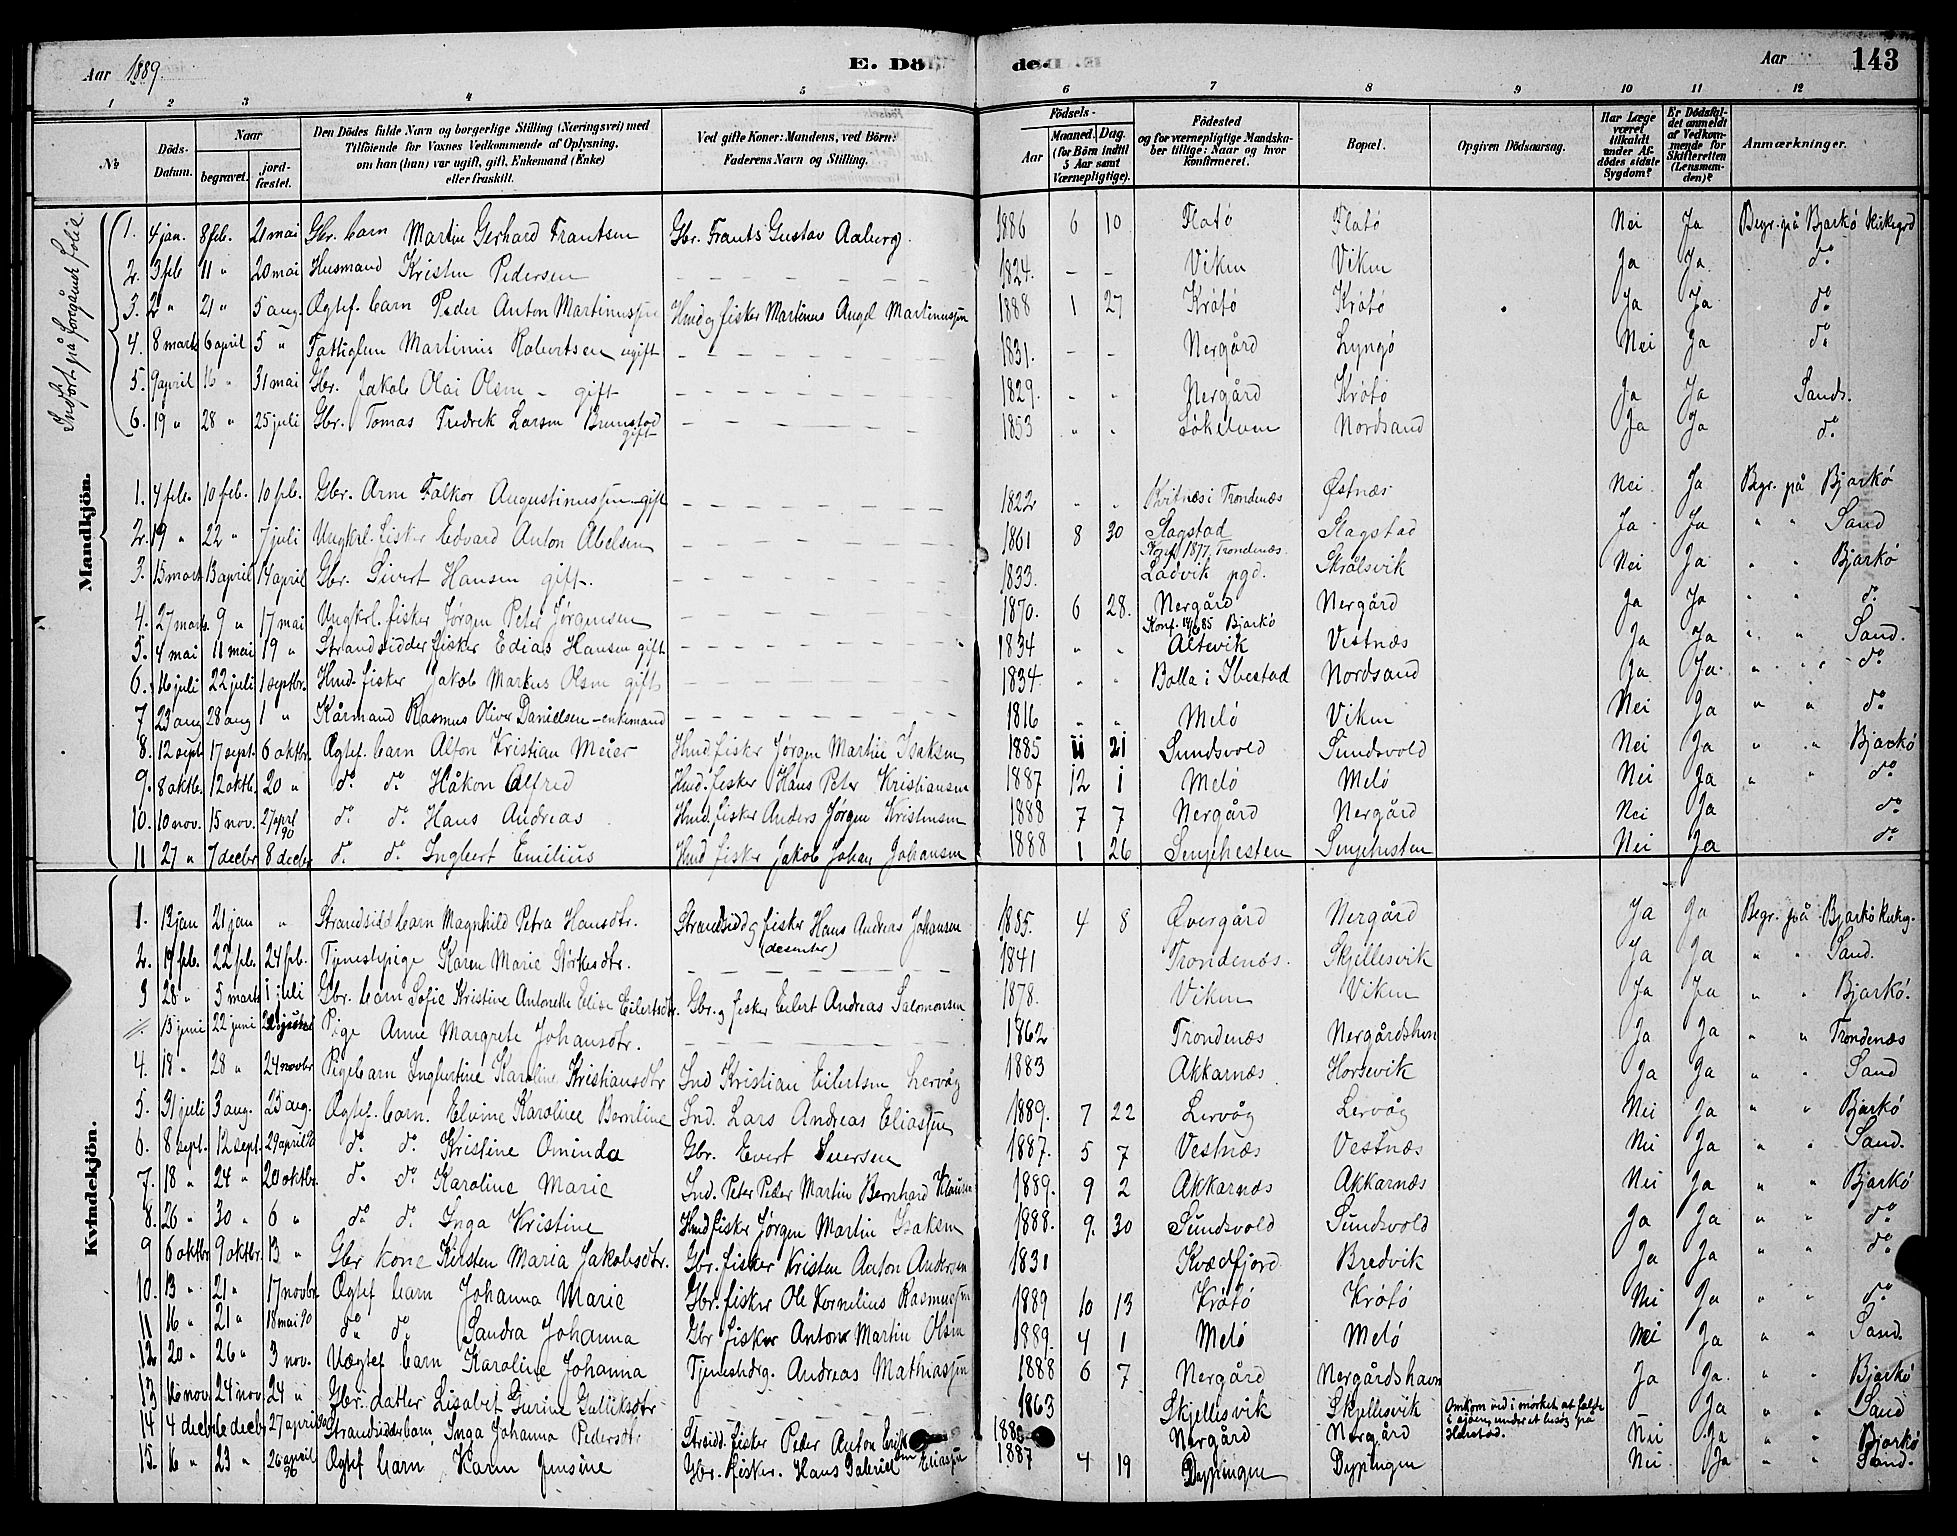 Aar 1889. E. Dö- de. Aar 143
1 2 3 4 5 6 7 8 9 10 11 12
№ Döds-Datum. Naar begravet. jord-fæstet. Den Dödes fulde Navn og borgerlige Stilling (Næringsvei) med Tilföiende for Voxnes Vedkommende af Oplysning, om han (hun) var ugift, gift, Enkemand (Enke) eller fraskilt. Ved gifte Koner: Mandens, ved Börn: Faderens Navn og Stilling. Födsels- Aar Maaned. Dag. (for Börn indtil 5 Aar samt Værnepligtige). Födested og for værnepligtige Mandskaber tillige: Naar og hvor konfirmeret. Bopæl. Opgiven Dödsaarsag. Har Læge været tilkaldt under Afdödes sidste Sygdom? Er Dödsfaldet anmeldt af Vedkommende for Skifteretten (Lensmanden)? Anmærkninger.
Indført på foregående folie
Mandkjön.
1. 4 jan. 8 feb. 21 mai Gbr. barn Martin Gerhard Frantsen Gbr. Frants Gustav Aaberg. 1886 6 10 Flatö Flatö Nei Ja Begr. på Bjarkö Kirkegrd
2. 3 feb 11 " 20 mai Husmand Kristen Pedersen 1824. - - Viken Viken Ja Ja do
3. 2 " 21 " 5 aug. Ægtef. barn Peder Anton Martinussen Hmd og fisker Martinus Angel Martinussen 1888 1 27 Krötö Krötö Ja Ja do
4. 8 marts 6 april 5 " Fattiglem Martinus Robertsen ugift 1831. - - Nergård Lyngö Nei Ja do
5. 9 april 16 " 31 mai Gbr. Jakob Olai Olsen - gift 1829. " " Nergård Krötö Ja Ja Sands.
6. 19 " 28 " 25 juli Gbr. Tomas Fredrik Larsen Brunstad gift 1853 " " Nordsand Ja Ja do
1. 4 feb. 10 feb. 10 feb. Gbr. Arn Falkor Augustinussen gift 1822 " " Kvitnæs i Trondenæs Østnæs Nei Ja Begr. på Bjarkö
2. 19 " 22 " 7 juli Ungkrl. fisker Edvard Anton Abelsen 1861 8 30 Slagstad Konf. 1877, Trondenæs. Slagstad Ja Ja " " Sand
3. 15 mart 13 april 14 april Gbr. Sivert Hansen gift. 1833. Ladvik pgd. Skrölsvik Nei Ja " " Bjarkö
4. 27 marts. 9 " 17 mai Ungkrl. fisker Jørgen Peter Jørgensen 1870. 6 28. Nergård Konf. 14/6 85 Bjarkö Nergård Ja Ja " " do
5. 4 mai 11 mai 19 " Strandsidder fisker Edias Hansen gift 1834 " " Altevik Vestnæs Ja Ja " " Sand.
6. 16 juli 22 juli 1 septbr. Hmd. fisker Jakob Markus Olsen gift 1834 " " Bolla i Ibestad Nordsand Ja Ja " " do
7 23 aug 28 aug 1 " Kårmand Rasmus Oliver Danielsen - enkemand 1816 " " Melö Viken Nei Ja " " do
8. 12 sept. 17 sept. 6 oktbr. Ægtef. barn Alton Kristian Meier Hmd fisker Jørgen Martin Isaksen 1885 11 21 Sundsvold Sundsvold Nei Ja " " Bjarkö
9. 8 oktb. 12 oktb. 20 " do do Håkon Alfred Hmd. fisker Hans Peter Kristiansen 1887 12 1 Melö Melö Nei Ja " " do
10. 10 nov. 15 nov. 27 april 90 do do Hans Andreas Hmd. fisker Anders Jørgen Kristensen 1888 7 7 Nergård Nergård Nei Ja do
11 27 " 7 decbr 8 decbr do do Ingbert Emilius Hmd fisker Jakob Johan Johansen 1888 1 26 Senjehesten Senjehesten Nei Ja do
Kvindekjön.
1. 13 jan 21 jan " Strandsidd barn Magnhild Petra Hansdtr. Strandsidd og fisker Hans Andreas Johansen (desenter) 1885. 4 8 Øvergård Nergård Ja Ja Begr. på Bjarkö Kirkeg.
2. 19 feb. 22 feb. 24 feb. Tjenestepige Karen Marie Størkersdtr. 1841 Trondenæs. Skjellesvik Ja Ja " " Sand.
3 28 " 5 marts 1 juli Gbr. barn Sofie Kristine Antonette Elise Eilertsdtr. Gbr. og fisker Eilert Andreas Salomonsen 1878. Viken Viken Ja Ja " " Bjarkö.
" 15 juni 22 juni Pige Anne Margrete Johansdtr. 1862 Trondenæs Nergårdshvn Ja Ja " " Trondenæs
4. 18 " 28 " 24 novbr Pigebarn Ingbertine Karoline Kristiansdtr Ind Kristian Eilertsen Lervåg 1883 Akkarnæs Horsevik Ja Ja " " Sand
5. 31 juli 3 aug. 25 aug. Ægtef. barn. Elvine Karoline Bernline Ind. Lars Andreas Eliassen 1889. 7 22 Lervåg Lervåg Nei Ja " " Bjarkö
6. 8 sept. 12 sept. 29 april 90 do do Kristine Ominda Gbr. Evert Suersen 1887. 5 7 Vestnæs Vestnæs Nei Ja " " Sand.
7. 18 " 24 " 20 oktbr. do do Karoline Marie Ind. Peter Peder Martin Bernhard Klausen 1889. 9 2 Akkarnæs Akkarnæs Nei Ja " " Bjarkö
8. 26 " 30 " 6 " do do Inga Kristine Hmd fisker Jørgen Martin Isaksen 1888. 9. 30 Sundsvold Sundsvold Ja Ja " " do
9 6 oktbr 9 oktbr. 13 " Gbr kone Kirsten Maria Jakobsdtr. Gbr. fisker Kristen Anton Andersen 1831 Kvædfjord Bredvik Ja Ja " " do
10. 13 " 21 " 17 novbr Ægtef barn Johanna Marie Gbr. fisker Ole Kornelius Rasmussen 1889 10 13 Krötö Krötö Nei Ja " " do
11 16 " 21 " 18 mai 90 do do Sandra Johanna Gbr fisker Anton Martin Olsen 1889. 4 1 Melö Melö Nei Ja " " Sand.
12 20 " 26 " 3 nov. Uægtef barn Karoline Johanna Tjenestedrg. Andreas Mathiassen 1888 6 7 Nergård Nergårdshavn Ja Ja " " Bjarkö
13 16 nov 24 nov 24 " Gbr. datter Lisabet Gurine Gulliksdtr 1863 Skjellesvik Skjellesvik Omkom ved i mörket at falde i sjöen under et besög på Harstad. " " Sand
14 4 decbr 6 decbr 27 april 90 Strandsidderbarn Inga Johanna Pedersdtr Strsidd. fisker Peder Anton Eriksen Nergård Nergård Nei Ja " " Bjarkö
15. 16 " 23 " 26 april 90 Ægtef barn Karen Jensine Gbr. fisker. Hans Gabriel Eliassen 1887 4 19 Dyppingen Dypingen Nei Ja " " Sand.